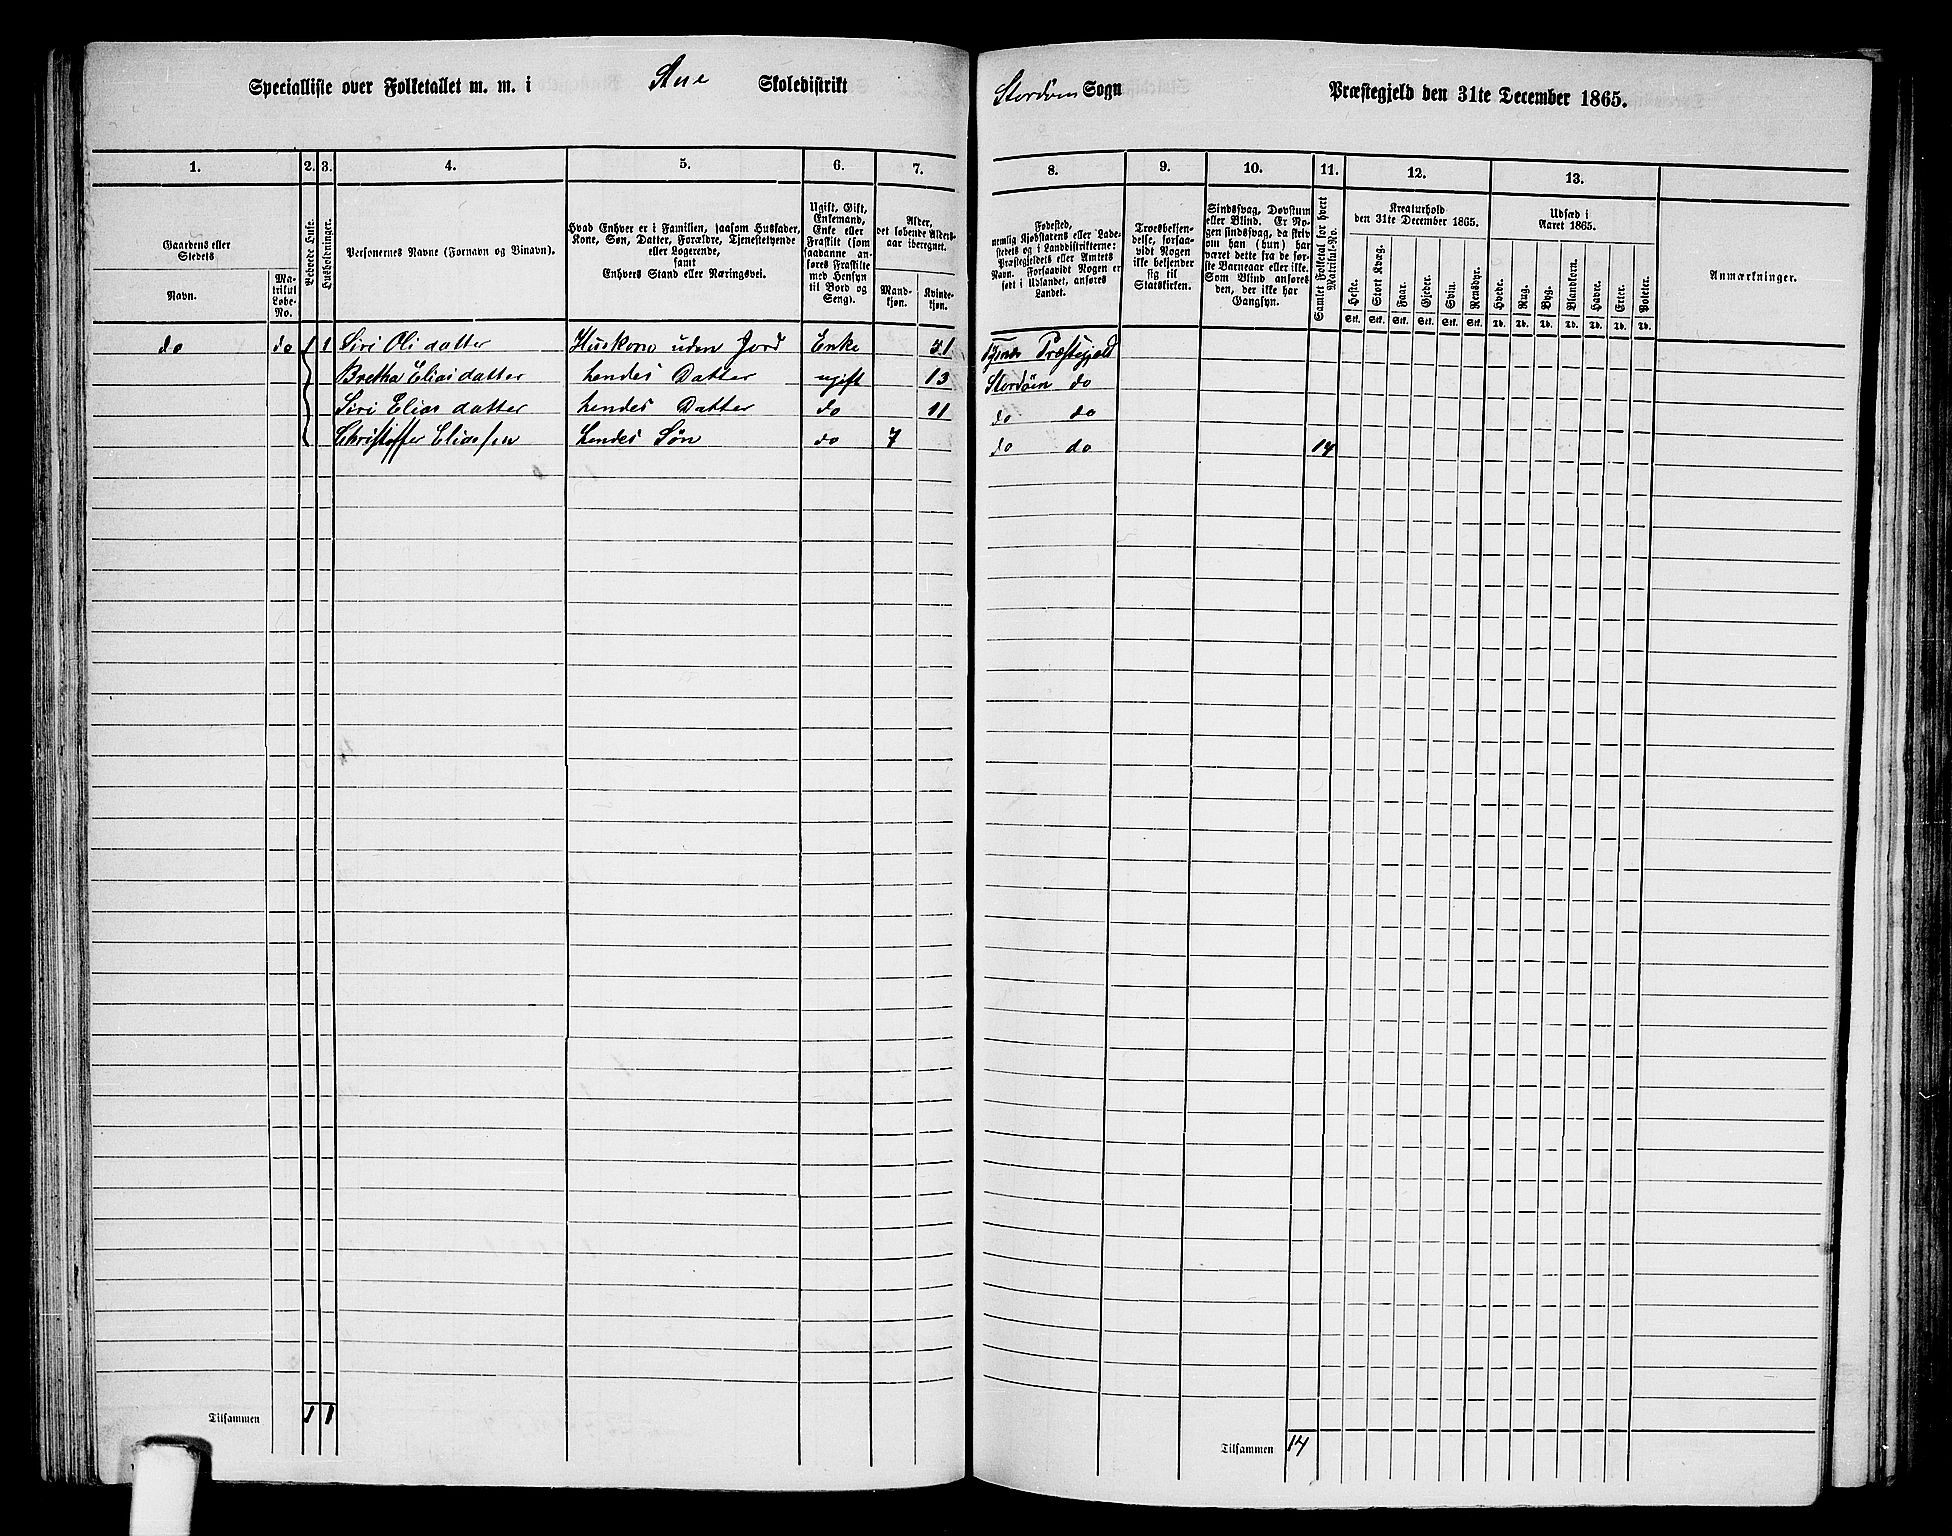 Specialliste over Folketallet m. m. i Aue Skoledistrikt
Stordøens Sogn Præstegjeld den 31te December 1865.
1. 2. 3. 4. 5. 6. 7.
8. 9. 10. 11. 12. 13.
Gaardens eller Stedets
Navn.
Matrikul Løbe-No.
Beboede Huse.
Husholdninger.
Personernes Navne (Fornavn og Binavn).
Hvad Enhver er i Familien, saasom Husfader,
Kone, Søn, Datter, Forældre, Tjenestetyende
eller Logerende,
samt
Enhvers Stand eller Næringsvei.
Ugift, Gift,
Enkemand,
Enke eller
Fraskilt (som
saadanne anføres
Fraskilte
med Hensyn
til Bord og
Seng).
Alder,
det løbende Aldersaar
iberegnet.
Mandkjøn.
Kvindekjøn.
Fødested,
nemlig Kjøbstadens eller Ladestedets
og i Landdistrikterne:
Præstegjeldets eller Amtets
Navn. Forsaavidt Nogen er
født i Udlandet, anføres
Landet.
Troesbekjendelse,
forsaavidt
Nogen
ikke bekjender
sig til
Statskirken.
Sindssvag, Døvstum
eller Blind. Er Nogen
sindssvag, da skriv
om han (hun) har
været dette fra de første
Barneaar eller ikke.
Som Blind anføres
den, der ikke har
Gangsyn.
Samlet Folketal for hvert
Matrikul-No.
Kreaturhold
den 31te December 1865.
Heste. Stort Kvæg. Faar. Gjeder. Sviin. Rensdyr.
Stk. Stk. Stk. Stk. Stk. Stk.
Udsæd i
Aaret 1865.
Hvede. Rug. Byg. Blandkorn. Havre. Erter. Poteter.
Td. Td. Td. Td. Td. Td. Td.
Anmærkninger.
do do 1 1 Siri Olidatter Huskone uden Jord Enke 51 Tysnæs Præstegjeld
Bretha Eliasdatter hendes Datter ugift 13 Stordøen do
Siri Eliasdatter hendes Datter do 11 do do
Christoffer Eliassen hendes Søn do 7 do do 14
Tilsammen 1 1
Tilsammen 14